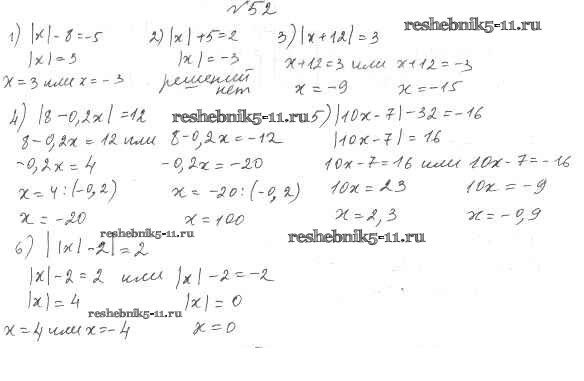 №52
reshebnik5-11.ru
1) |x| - 8 = -5
|x| = 3
x = 3 или x = -3
2) |x| + 5 = 2
|x| = -3
решений
нет
3) |x + 12| = 3
x + 12 = 3 или x + 12 = -3
x = -9 x = -15
4) |8 - 0,2x| = 12
8 - 0,2x = 12 или 8 - 0,2x = -12
-0,2x = 4 -0,2x = -20
x = 4 : (-0,2) x = -20 : (-0,2)
x = -20 x = 100
reshebnik5-11.ru
5) |10x - 7| - 32 = -16
|10x - 7| = 16
10x - 7 = 16 или 10x - 7 = -16
10x = 23 10x = -9
x = 2,3 x = -0,9
reshebnik5-11.ru
reshebnik5-11.ru
6) ||x| - 2| = 2
|x| - 2 = 2 или |x| - 2 = -2
|x| = 4 |x| = 0
reshebnik5-11.ru
x = 4 или x = -4 x = 0